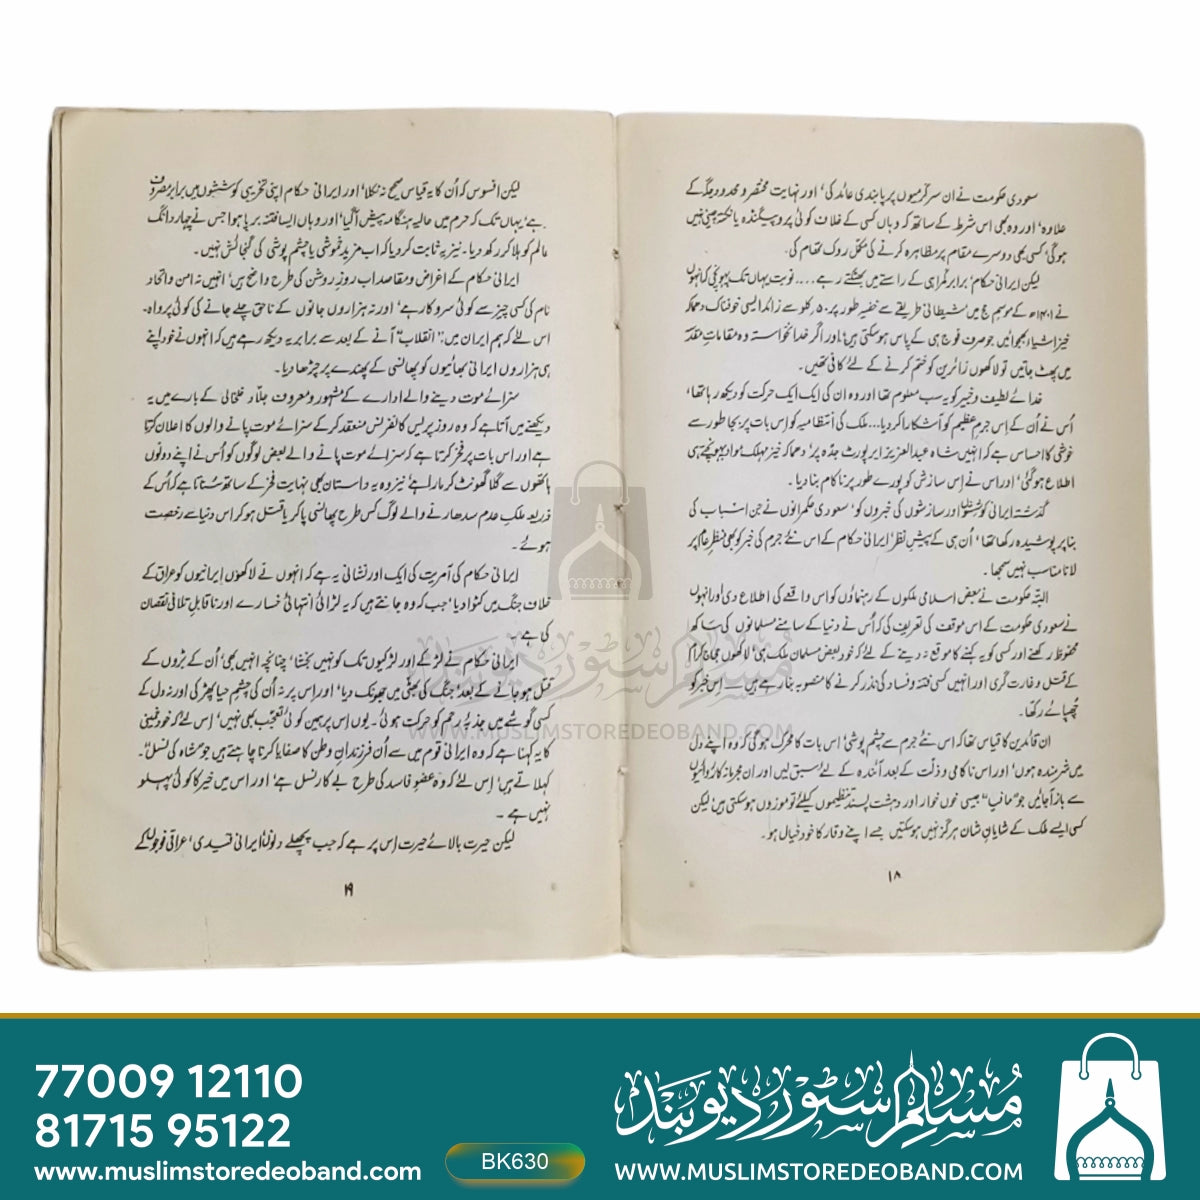 سعودی حکومت نے ان سرگرمیوں پر پابندی عائد کی، اور نہایت مختصر و محدود جگہ کے
علاوہ، اور وہ بھی اس شرط کے ساتھ کہ وہاں کسی کے خلاف کوئی پروپیگنڈہ یا نکتہ چینی نہیں
ہوگی، کسی بھی دوسرے مقام پر مظاہرہ کرنے کی مکمل روک تھام کی۔
لیکن ایرانی حکام، برابر گمراہی کے راستے میں بھٹکتے رہے .... نوبت یہاں تک پہونچی کہ انہوں
نے ۱۴۰۶ھ کے موسم حج میں شیطانی طریقے سے خفیہ طور پر ۵۰ کلو سے زائد ایسی خوفناک دھماکہ
خیز اشیاء بھجوائیں جو صرف فوج ہی کے پاس ہوسکتی ہیں، اور اگر خدانخواستہ وہ مقامات مقدسہ
میں پھٹ جاتیں تو لاکھوں زائرین کو ختم کرنے کے لئے کافی تھیں۔
خدائے لطیف و خبیر کو یہ سب معلوم تھا اور وہ ان کی ایک ایک حرکت کو دیکھ رہا تھا،
اُس نے اُن کے اِس جرمِ عظیم کو آشکارا کر دیا... ملک کی انتظامیہ کو اِس بات پر بجا طور سے
خوشی کا احساس ہے کہ انہیں شاہ عبدالعزیز ایرپورٹ جدّہ پر، دھماکہ خیز مہلک مواد پہونچتے ہی
اطلاع ہوگئی، اور اس نے اِس سازش کو پورے طور پر ناکام بنا دیا۔
گذشتہ ایرانی کوششوں اور سازشوں کی خبروں کو، سعودی حکمرانوں نے جن اسباب کی
بنا پر پوشیدہ رکھا تھا، اُن ہی کے پیشِ نظر، ایرانی حکام کے اس نئے جرم کی خبر کو بھی منظرِ عام پر
لانا مناسب نہیں سمجھا۔
البتہ حکومت نے بعض اسلامی ملکوں کے رہنماؤں کو اس واقعے کی اطلاع دی اور انہوں
نے سعودی حکومت کے اس موقف کی تعریف کی کہ اُس نے دنیا کے سامنے مسلمانوں کی ساکھ
محفوظ رکھنے اور کسی کو یہ کہنے کا موقع نہ دینے کے لئے کہ خود بعض مسلمان ملک ہی، لاکھوں حجاج کرام
کے قتل و غارت گری اور انہیں کسی فتنہ و فساد کی نذر کرنے کا منصوبہ بنا رہے ہیں — اِس خبر کو
چھپائے رکھا۔
ان قائدین کا قیاس تھا کہ اس نئے جرم سے چشم پوشی، اس بات کا محرک ہوگی کہ وہ اپنے دل
میں شرمندہ ہوں، اور اس ناکامی و ذلّت کے بعد آئندہ کے لئے سبق لیں اور ان مجرمانہ کارروائیوں
سے باز آجائیں جو "مافیا" جیسی خوں خوار اور دہشت پسند تنظیموں کیلئے تو موزوں ہوسکتی ہیں، لیکن
کسی ایسے ملک کے شایانِ شان ہرگز نہیں ہوسکتیں جسے اپنے وقار کا خود خیال ہو۔
۱۸
لیکن افسوس کہ اُن کا یہ قیاس صحیح نہ نکلا، اور ایرانی حکام اپنی تخریبی کوششوں میں برابر مصروف
رہے، یہاں تک کہ حرم میں حالیہ ہنگامہ پیش آگیا، اور وہاں ایسا فتنہ برپا ہوا جس نے چہار دانگ
عالم کو ہلا کر رکھ دیا۔ نیز یہ ثابت کر دیا کہ اب مزید خموشی یا چشم پوشی کی گنجائش نہیں۔
ایرانی حکام کے اغراض و مقاصد اب روزِ روشن کی طرح واضح ہیں، انہیں نہ امن و اتحاد
نام کی کسی چیز سے کوئی سروکار ہے، اور نہ ہزاروں جانوں کے ناحق چلے جانے کی کوئی پرواہ۔
اس لئے کہ ہم ایران میں، "انقلاب" آنے کے بعد سے برابر یہ دیکھ رہے ہیں کہ انہوں نے خود اپنے
ہی ہزاروں ایرانی بھائیوں کو پھانسی کے پھندے پر چڑھا دیا۔
سزائے موت دینے والے ادارے کے مشہور و معروف جلّاد خلخالی کے بارے میں یہ
دیکھنے میں آتا ہے کہ وہ روز پریس کانفرنس منعقد کر کے سزائے موت پانے والوں کا اعلان کرتا
ہے اور اس بات پر فخر کرتا ہے کہ سزائے موت پانے والے بعض لوگوں کو اُس نے اپنے دونوں
ہاتھوں سے گلا گھونٹ کر مارا ہے، نیز وہ یہ داستان بھی نہایت فخر کے ساتھ سُناتا ہے کہ اُس کے
ذریعہ ملکِ عدم سدھارنے والے لوگ کس طرح پھانسی پا کر یا قتل ہو کر اس دنیا سے رخصت
ہوئے۔
ایرانی حکام کی آمریت کی ایک اور نشانی یہ ہے کہ انہوں نے لاکھوں ایرانیوں کو عراق کے
خلاف جنگ میں کٹوا دیا، جب کہ وہ جانتے ہیں کہ یہ لڑائی انتہائی خسارے اور ناقابلِ تلافی نقصان
کی ہے۔
ایرانی حکام نے لڑکے اور لڑکیوں تک کو نہیں بخشا، چنانچہ انہیں بھی، اُن کے بڑوں کے
قتل ہو جانے کے بعد، جنگ کی بھٹی میں جھونک دیا، اور اِس پر نہ اُن کی چشمِ حیا پھڑکی اور نہ دل کے
کسی گوشے میں جذبۂ رحم کو حرکت ہوئی۔ یوں اِس پر ہمیں کوئی تعجب بھی نہیں، اِس لئے کہ خود خمینی
کا یہ کہنا ہے کہ وہ ایرانی قوم میں سے اُن فرزندانِ وطن کا صفایا کرنا چاہتے ہیں جو "شاہ کی نسل"۔
کہلاتے ہیں، اِس لئے کہ وہ عضوِ فاسد کی طرح بے کار نسل ہے، اور اس میں خیر کا کوئی پہلو
نہیں ہے۔
لیکن حیرت بالائے حیرت اِس پر ہے کہ جب پچھلے دنوں ایرانی قیدی، عراقی فوجوں کے
۱۹
مسلم سٹور دیوبند
WWW.MUSLIMSTOREDEOBAND.COM
77009 12110
81715 95122
www.muslimstoredeoband.com
BK630
مسلم سٹور دیوبند
WWW.MUSLIMSTOREDEOBAND.COM